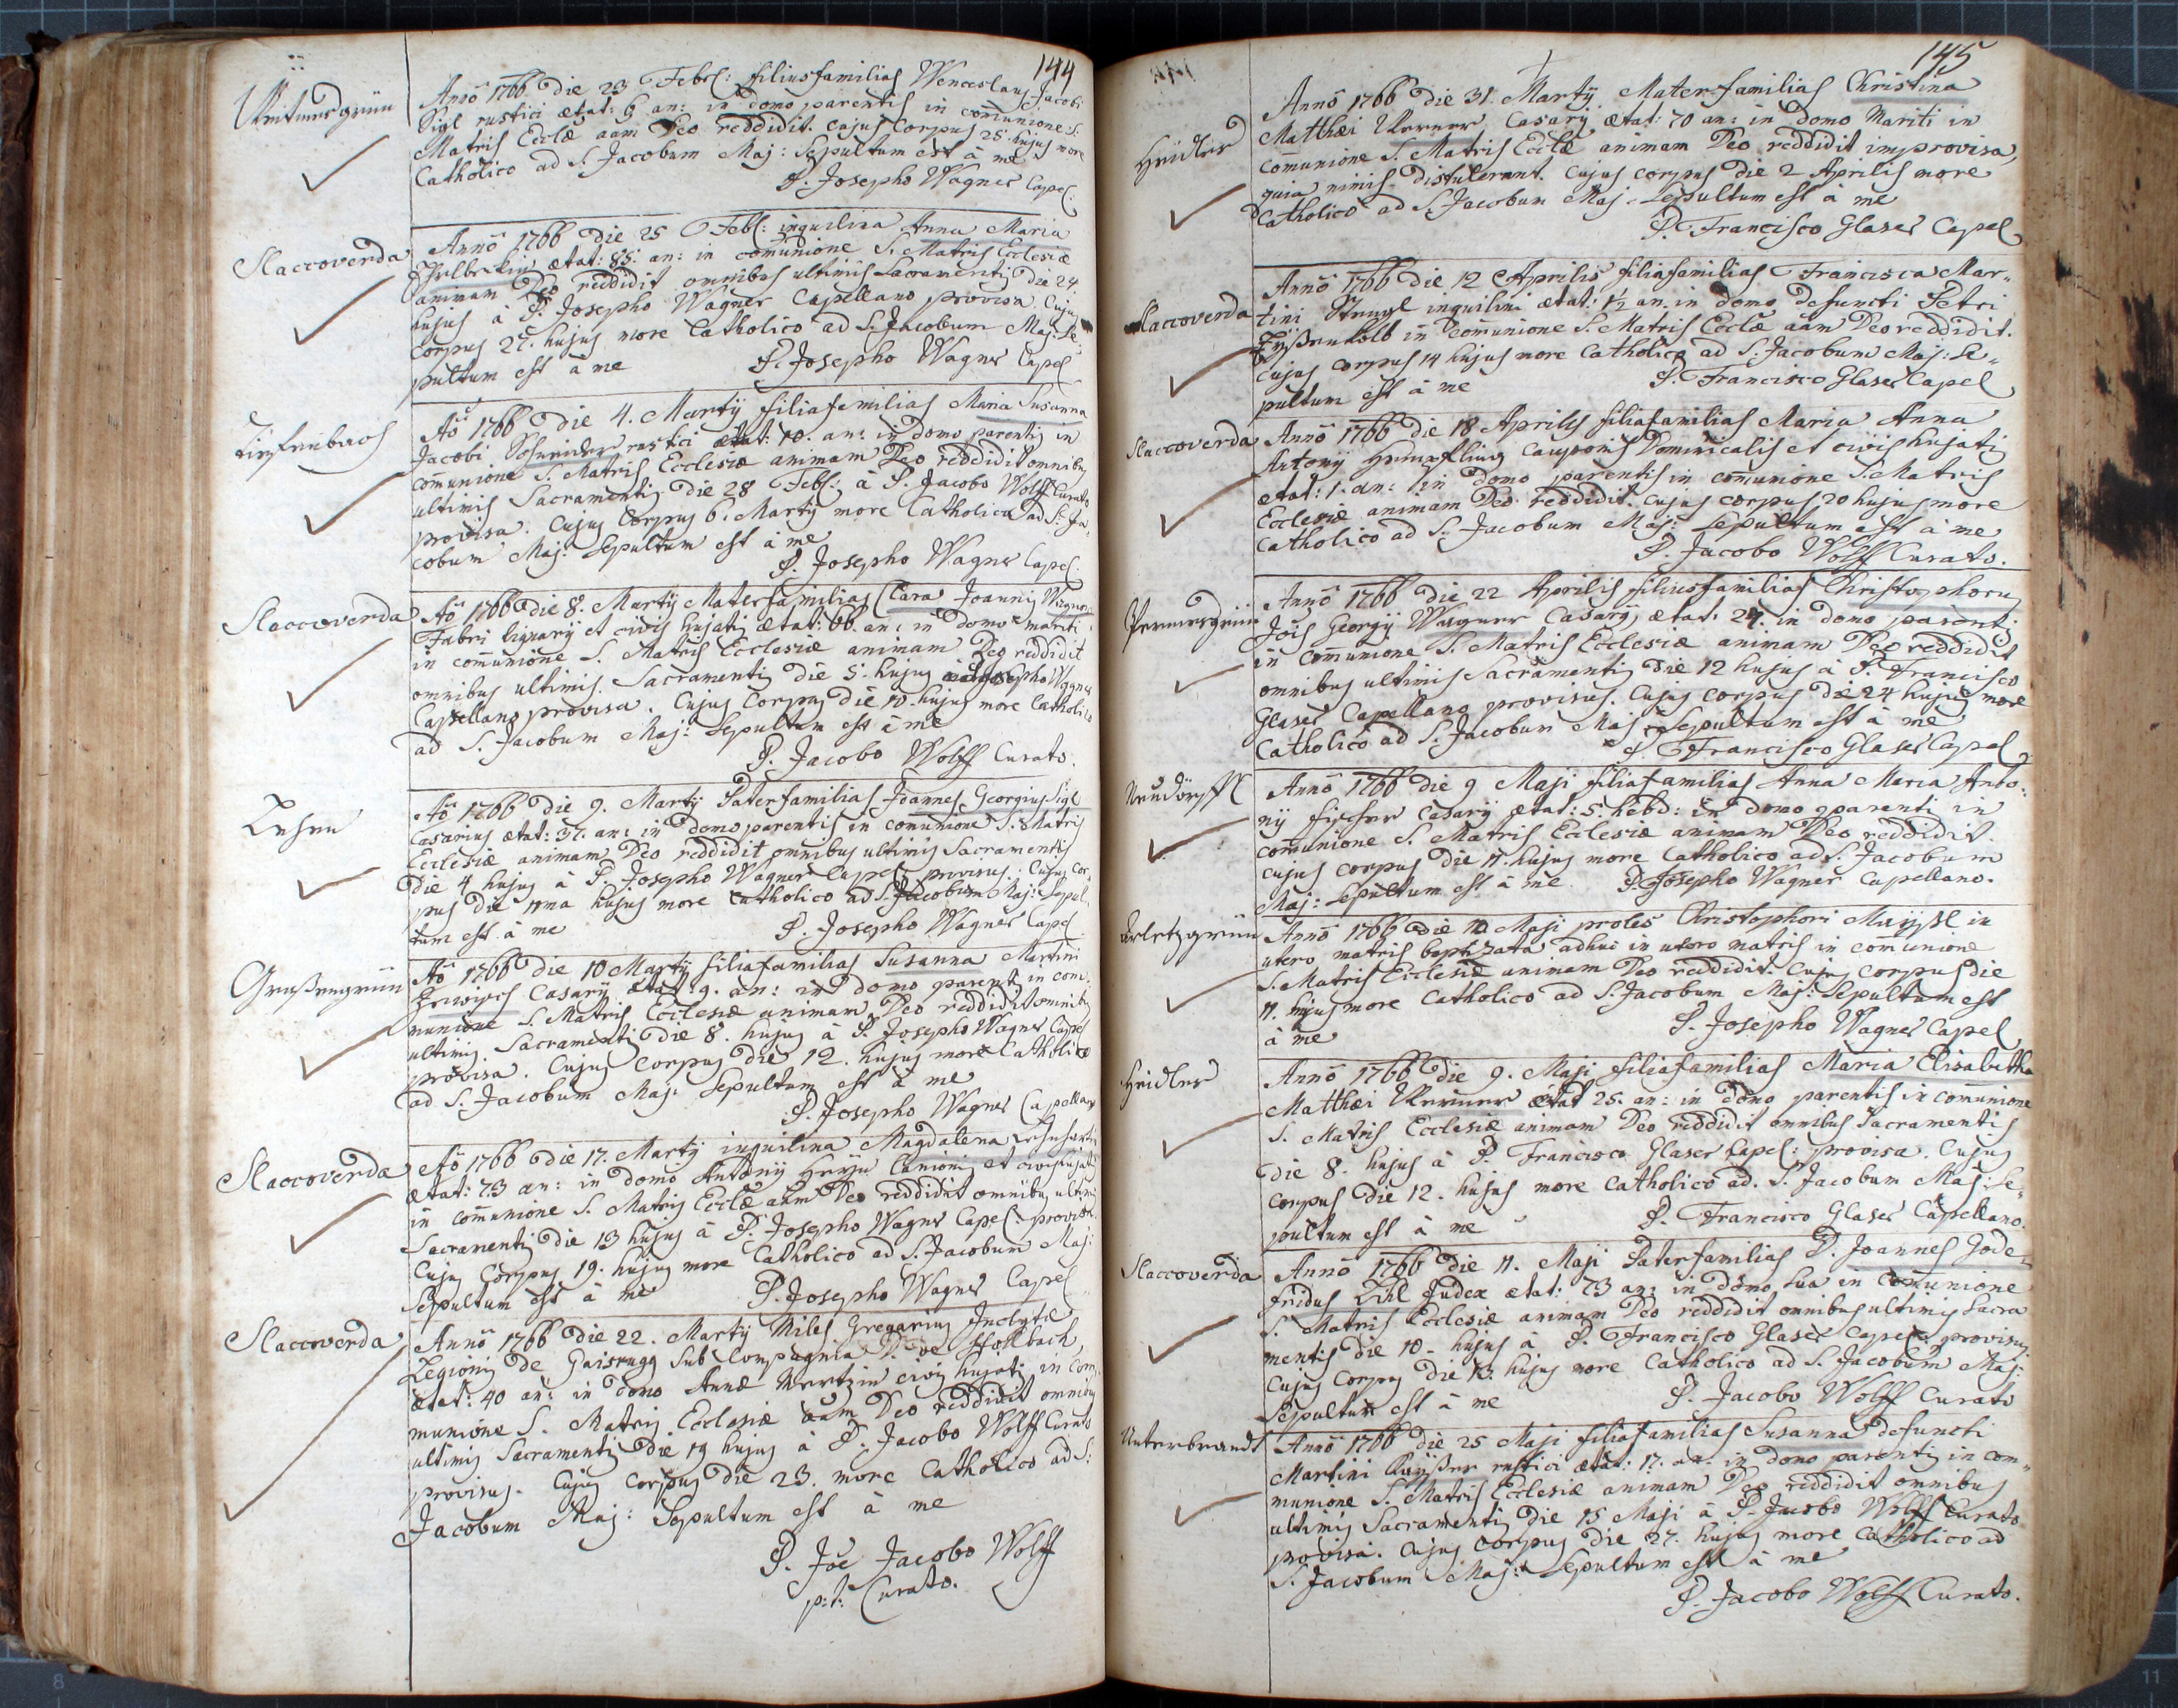 144
Anno 1766 die 23 Febr: filiusfamilias Wenceslaus Jacobi
Sigl rustici ætat: 6 an: in domo parentis in comunione S.
Matris Ecclæ aam Deo reddidit. cujus corpus 25 hujus more
Catholico ad S. Jacobum Maj: Sepultum est à me
P. Josepho Wagner Capel.
Slaccoverda
Anno 1766 die 25 Feb: inquilina Anna Maria
ætat: 85: an: in comunione S. Matris Ecclesiæ
animam Deo reddidit omnibus ultimis Sacramentis die 24.
hujus à P. Josepho Wagner Capellano provisa. Cujus
corpus 27. hujus more Catholico ad S. Jacobum Maj: Se-
pultum est à me P. Josepho Wagner Capel
Ao 1766 die 4. Martij filiafamilias Maria Susanna
Jacobi Schneider rustici ætat: 10. an: in domo parentis in
comunione S. Matris Ecclesiæ animam Deo reddidit omnibus
ultimis Sacramentis die 28 Feb: à P. Jacobo Wolff Curato
provisa. Cujus Corpus 6. Martij more Catholico ad S: Ja-
cobum Maj: Sepultum est à me
P. Josepho Wagner Capel.
Slaccoverda
Ao 1766 die 8. Martij Materfamilias Clara Joannis Wagner
Fabri lignarij et civis hujatis ætat: 66. an: in domo mariti
in comunione S. Matris Ecclesiæ animam Deo reddidit
omnibus ultimis Sacramentis die 5. hujus à P. Josepho Wagner
Capellano provisa. Cujus Corpus die 10. hujus more Catholico
ad S. Jacobum Maj: Sepultum est à me
P. Jacobo Wolff Curato.
Lesen
Ao 1766 die 9. Martij Paterfamilias Joannes Georgius Sigl
Casarius ætat: 37. an: in domo parentis in comunione S. Matris
Ecclesiæ animam Deo reddidit omnibus ultimis Sacramentis
die 4 hujus à P. Josepho Wagner Capel: provisus. Cujus Cor-
pus die 11ma hujus more Catholico ad S. Jacobum Maj: Sepul-
tum est à me P. Josepho Wagner Capel
Großengrün
Ao 1766 die 10 Martij filiafamilias Susanna Martini
Casarij ætat: 9. an: in domo parentis in com-
munione S. Matris Ecclesiæ animam Deo reddidit omnibus
ultimis Sacramentis die 8. hujus à P. Josepho Wagner Capel
provisa. Cujus Corpus die 12. hujus more Catholico
ad S. Jacobum Maj: Sepultum est à me
P. Josepho Wagner Capellano
Slaccoverda
Ao 1766 die 17. Martij inquilina Magdalena
ætat: 73 an: in domo Antonij Lanionis et civis hujatis
in comunione S. Matris Ecclæ aam Deo reddidit omnibus ultimis
Sacramentis die 13 hujus à P. Josepho Wagner Capel: provisa.
Cujus Corpus 19. hujus more Catholico ad S. Jacobum Maj:
Sepultum est à me P. Josepho Wagner Capel
Slaccoverda
Anno 1766 die 22. Martij Miles Gregarius Inclytæ
Legionis de Gaisrugg sub Compagnia D. de
ætat: 40 an: in domo Annæ civis hujatis in Com-
munione S. Matris Ecclesiæ aam Deo reddidit omnibus
ultimis Sacramentis die 19 hujus à P. Jacobo Wolff Curato
provisus. Cujus Corpus die 23. more Catholico ad S:
Jacobum Maj: Sepultum est à me
P. Joe Jacobo Wolff
p: t: Curato.
145
Heidles
Anno 1766 die 31. Martij Materfamilias Christina
Matthæi Werner Casarij ætat: 70 an: in domo Mariti in
comunione S. Matris Ecclæ animam Deo reddidit improvisa,
quia nimis distulerant. Cujus corpus die 2 Aprilis more
Catholico ad S. Jacobum Maj: Sepultum est à me
P. Francisco Glaser Capel
Slaccoverda
Anno 1766 die 12 Aprilis filiafamilias Francisca Mar-
tini inquilini ætat: 1/2 an: in domo defuncti Petri
in comunione S. Matris Ecclæ aam Deo reddidit.
Cujus corpus 14 hujus more Catholico ad S. Jacobum Maj: Se-
pultum est à me P. Francisco Glaser Capel
Slaccoverda
Anno 1766 die 18 Aprilis filiafamilias Maria Anna
Antonij Cauponis Dominicalis et civis hujatis
ætat: 1. an: in domo parentis in comunione S. Matris
Ecclesiæ animam Deo reddidit. Cujus corpus 20 hujus more
Catholico ad S. Jacobum Maj: Sepultum est à me
P. Jacobo Wolff Curato.
Permesgrün
Anno 1766 die 22 Aprilis filiusfamilias Christophorus
Jois Georgij Wagner Casarij ætat: 24. in domo parentis
in communione S. Matris Ecclesiæ animam Deo reddidit
omnibus ultimis Sacramentis die 12 hujus à P. Francisco
Glaser Capellano provisus. Cujus corpus die 24 hujus more
Catholico ad S. Jacobum Maj: Sepultum est à me
P. Francisco Glaser Capel
Neudörffl
Anno 1766 die 9 Maji filiafamilias Anna Maria Anto-
nij Fischer Casarij ætat: 5. hebd: in domo parentis in
comunione S. Matris Ecclesiæ animam Deo reddidit.
cujus corpus die 11. hujus more Catholico ad S. Jacobum
Maj: Sepultum est à me. P. Josepho Wagner Capellano.
Arletzgrün
Anno 1766 die 10 Maji proles Christophori in
utero matris baptizata adhuc in utero matris in comunione
S. Matris Ecclesiæ animam Deo reddidit. Cujus corpus die
11. hujus more Catholico ad S. Jacobum Maj: Sepultum est
à me P. Josepho Wagner Capel
Heidles
Anno 1766 die 9. Maji filiafamilias Maria Elisabetha
Matthæi Werner ætat 25. an: in domo parentis in comunione
S. Matris Ecclesiæ animam Deo reddidit omnibus Sacramentis
die 8. hujus à P. Francisco Glaser Capel: provisa. Cujus
corpus die 12. hujus more Catholico ad S. Jacobum Maj: Se-
pultum est à me P. Francisco Glaser Capellano.
Slaccoverda
Anno 1766 die 11. Maji Paterfamilias D. Joannes Gode-
fridus Judex ætat: 73 an: in domo sua in comunione
S. Matris Ecclesiæ animam Deo reddidit omnibus ultimis Sacra
mentis die 10. hujus à P. Francisco Glaser Capel: provisus.
Cujus Corpus die 13. hujus more Catholico ad S. Jacobum Maj:
Sepultum est à me P. Jacobo Wolff Curato
Unterbrandt
Anno 1766 die 25 Maji filiafamilias Susanna defuncti
Martini rustici ætat: 17. an: in domo parentis in com-
munione S. Matris Ecclesiæ animam Deo reddidit omnibus
ultimis Sacramentis die 15 Maji à P. Jacobo Wolff Curato
provisa. Cujus corpus die 27. hujus more Catholico ad
S. Jacobum Maj: Sepultum est à me
P. Jacobo Wolff Curato.
8
11